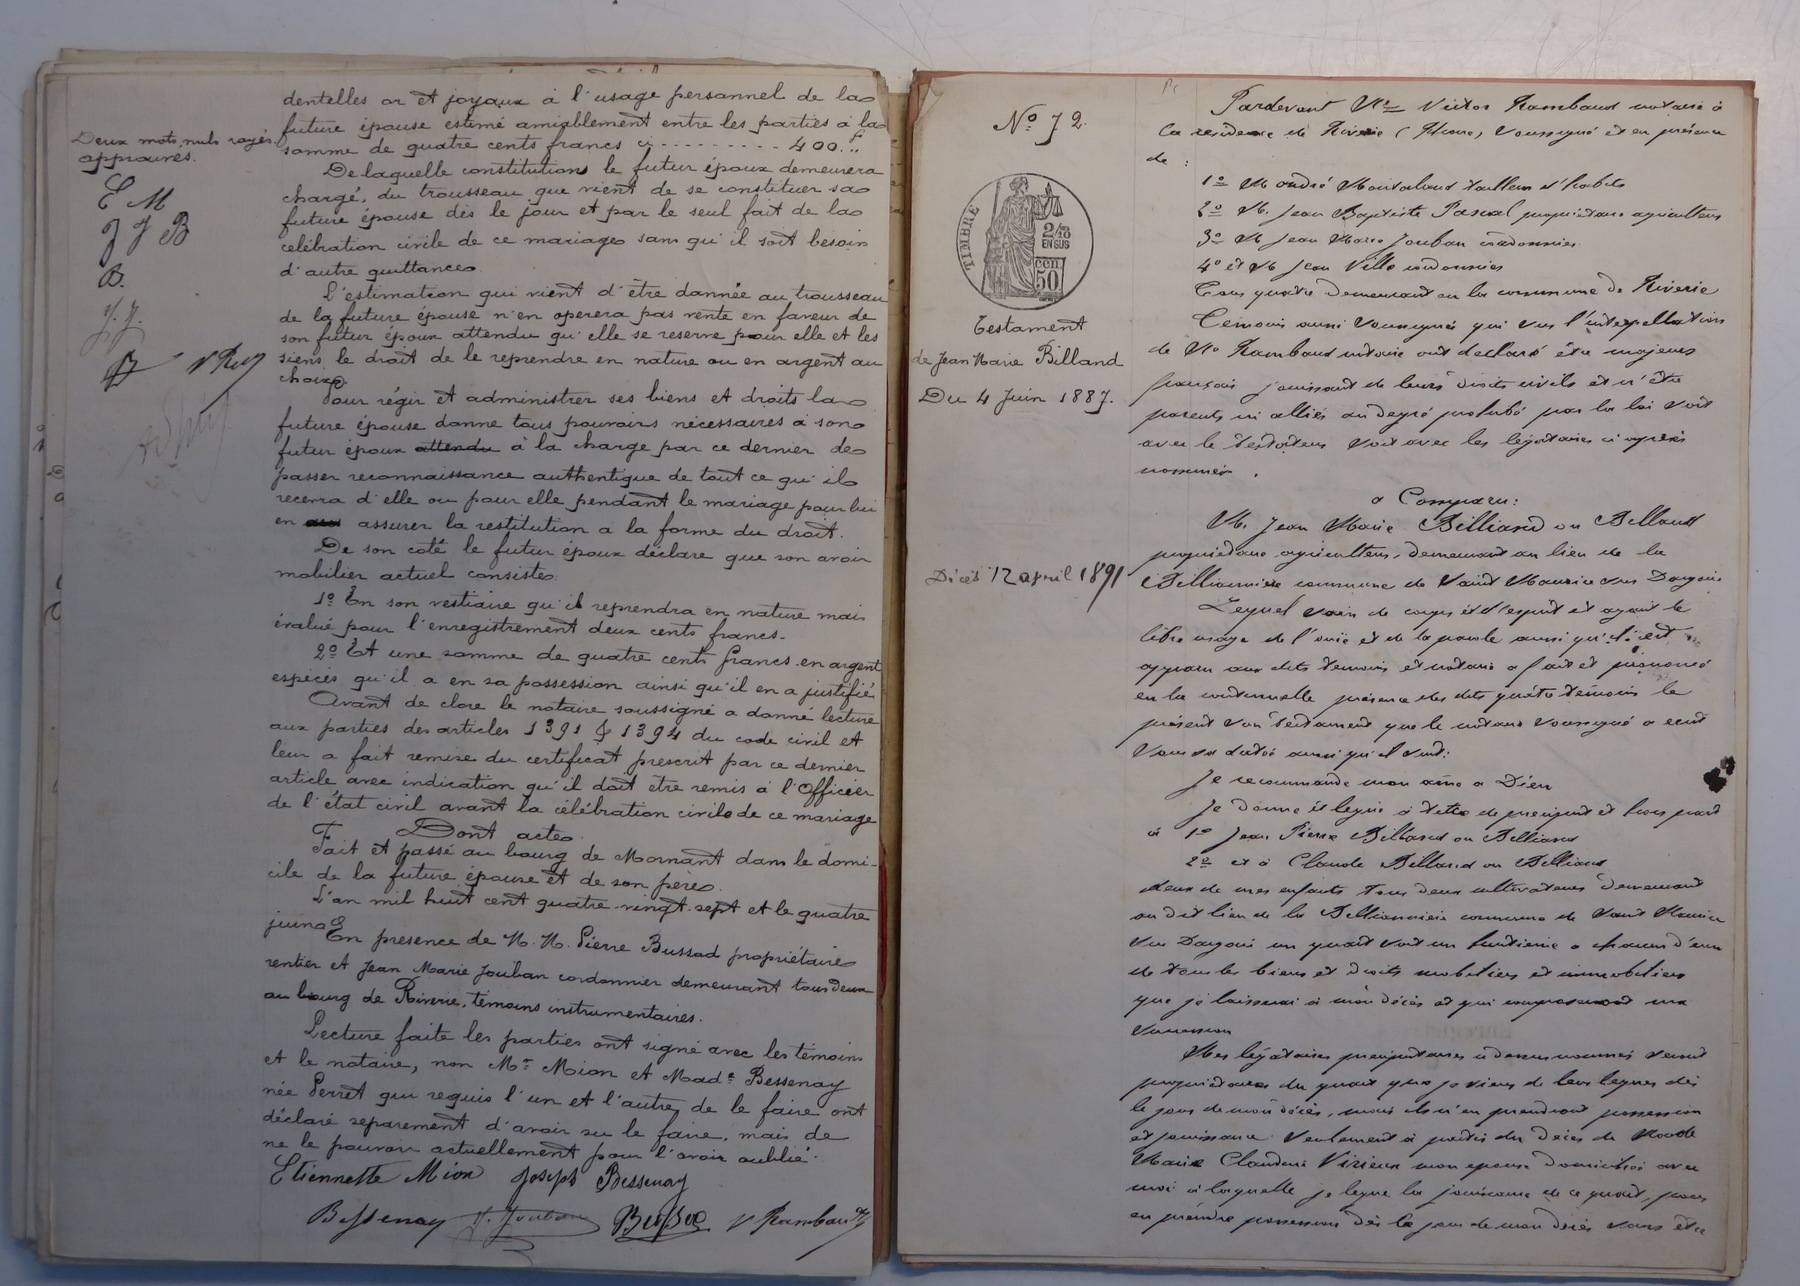 dentelles or et joyaux à l'usage personnel de la
future épouse estimé amiablement entre les parties à la
somme de quatre cents francs ci - - - - - - - - - 400.f"
De laquelle constitutions le futur époux demeurera
chargé, du trousseau que vient de se constituer sa
future épouse dès le jour et par le seul fait de la
célébration civile de ce mariage sans qu'il soit besoin
d'autre quittance.
L'estimation qui vient d'être donnée au trousseau
de la future épouse n'en operera pas vente en faveur de
son futur époux attendu qu'elle se reserve pour elle et les
siens le droit de le reprendre en nature ou en argent au
choix.
Pour régir et administrer ses biens et droits la
future épouse donne tous pouvoirs nécessaires à son
futur époux attendu à la charge par ce dernier de
passer reconnaissance authentique de tout ce qu'il
recevra d'elle ou pour elle pendant le mariage pour lui
en assurer la restitution a la forme du droit.
De son coté le futur époux déclare que son avoir
mobilier actuel consiste:
1º En son vestiaire qu'il reprendra en nature mais
évalué pour l'enregistrement deux cents francs.
2º Et une somme de quatre cents francs en argent
espèces qu'il a en sa possession ainsi qu'il en a justifié
Avant de clore le notaire soussigné a donné lecture
aux parties des articles 1391 & 1394 du code civil et
leur a fait remise du certificat prescrit par ce dernier
article avec indication qu'il doit etre remis à l'Officier
de l'état civil avant la célébration civile de ce mariage
Dont acte.
Fait et passé au bourg de Mornant dans le domi-
cile de la future épouse et de son père.
L'an mil huit cent quatre-vingt-sept et le quatre
juin
En presence de M. M. Pierre Bussod propriétaire
rentier et Jean Marie Jouban cordonnier demeurant tous deux
au bourg de Riverie, témoins instrumentaires.
Lecture faite les parties ont signé avec les témoins
et le notaire, non Mr Mion et Made Bessenay
née Perret qui requis l'un et l'autre de le faire ont
déclaré separement d'avoir su le faire, mais de
ne le pouvoir actuellement pour l'avoir oublié.
Etiennette Mion Joseph Bessenay
Bessenay J. Jouban V Rambaud
Deux mots nuls rayés
approuvés.
E M
J J B
B.
J. J.
Nº 72.
TIMBRE
2/10
EN SUS
CEN
50
Testament
de Jean Marie Billand
Du 4 Juin 1887.
Décès 12 april 1891
Pardevant Me Victor Rambaud notaire à
la résidence de Riverie (Rhône) soussigné et en présence
de :
1º M André tailleur d'habits
2º M. Jean Baptiste Pascal propriétaire agriculteur
3º M Jean Marie Jouban cordonnier
4º et M Jean Ville cordonnier
Tous quatre demeurant en la commune de Riverie
Témoins aussi soussignés qui sur l'interpellation
de Me Rambaud notaire ont déclaré être majeurs
français jouissant de leurs droits civils et n'être
parents ni alliés au degré prohibé par la loi soit
avec le testateur soit avec les légataires ci après
nommés.
a Comparu:
M. Jean Marie Billiand ou Billand
propriétaire agriculteur, demeurant au lieu de la
Billiannière commune de Saint Maurice sur Dargoire
Lequel sain de corps et d'esprit et ayant le
libre usage de l'ouïe et de la parole ainsi qu'il est
apparu aux dits témoins et notaire a fait et prononcé
en la continuelle présence des dits quatre témoins le
présent son testament que le notaire soussigné a ecrit
sous sa dictée ainsi qu'il suit:
Je recommande mon âme a Dieu
Je donne et legue à titre de preciput et hors part
à 1º Jean Pierre Billand ou Billiand
2º et à Claude Billand ou Billiand
deux de mes enfants tous deux cultivateurs demeurant
au dit lieu de la Billiannière commune de Saint Maurice
sur Dargoire un quart soit un huitième a chacun d'eux
de tous les biens et droits mobiliers et immobiliers
que je laisserai à mon décès et qui composeront ma
succession
Mes légataires preciputaires ci dessus nommés seront
propriétaires du quart que je viens de leur leguer dès
le jour de mon décès, mais ils n'en prendront possession
et jouissance seulement à partir du décès de
Marie Claudine Virieux mon epouse domiciliée avec
moi à laquelle je legue la jouissance de ce quart, pour
en prendre possession dès le jour de mon décès sans être